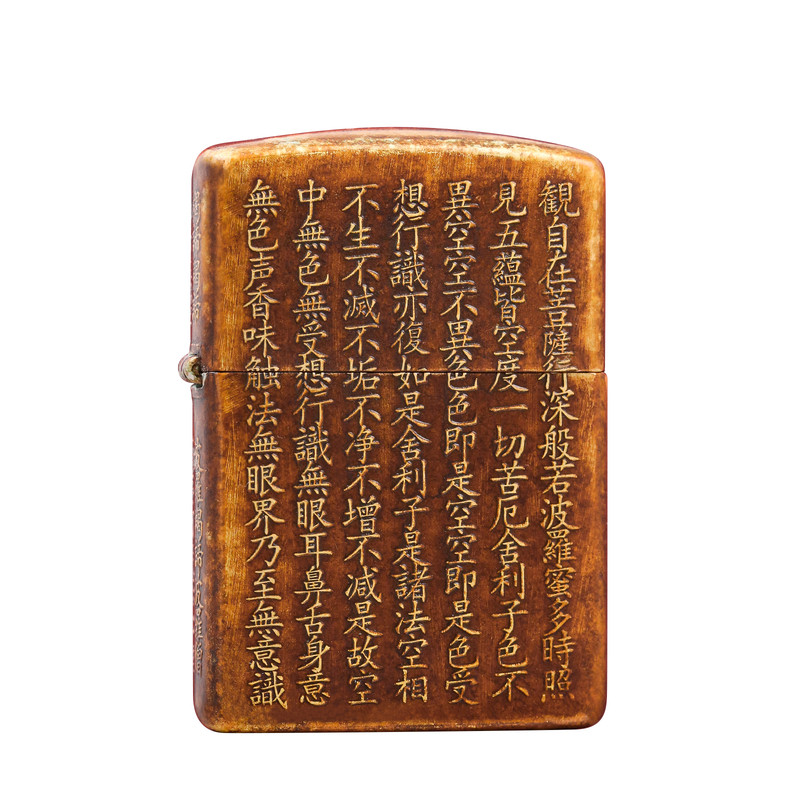 観自在菩薩行深般若波羅蜜多時照
見五蘊皆空度一切苦厄舍利子色不
異空空不異色色即是空空即是色受
想行識亦復如是舍利子是諸法空相
不生不滅不垢不净不増不减是故空
中無色無受想行識無眼耳鼻舌身意
無色声香味触法無眼界乃至無意識